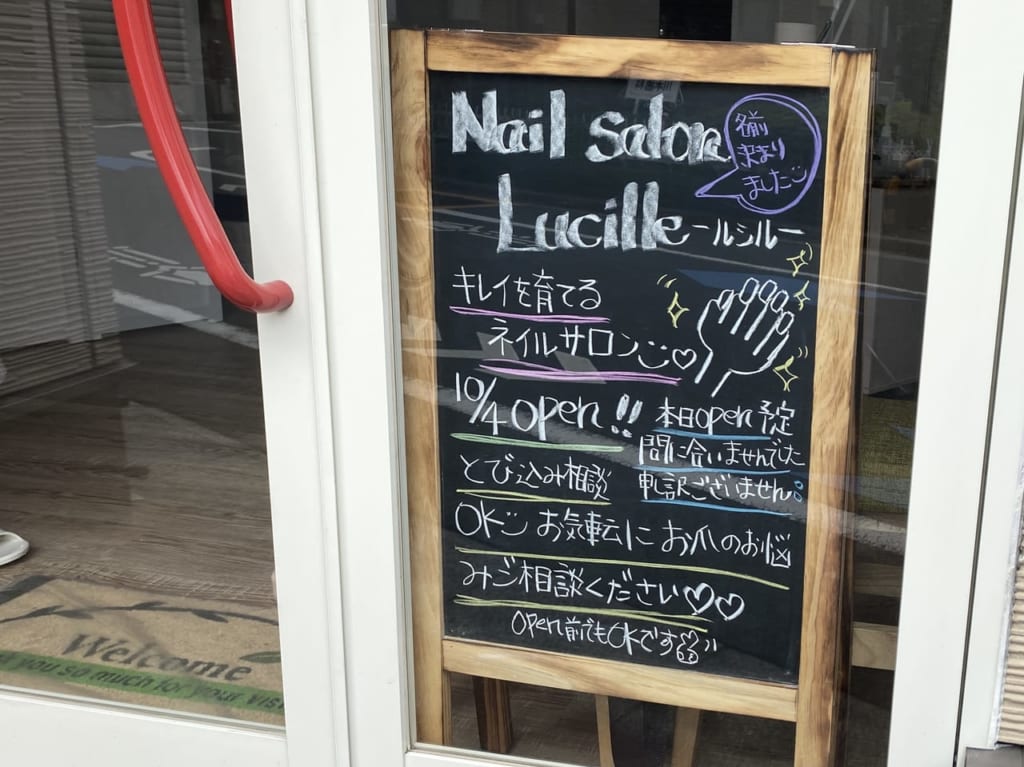 Nail Salon
名前
決まり
ました
Lucille ールシルー
キレイを育てる
ネイルサロン♡
10/4 open!!
本日open予定
間に合いませんでした
申訳ございません
とび込み相談
OK お気転に お爪のお悩
みご相談ください♡♡
open前でもOKです
Welcome
you so much for your visi